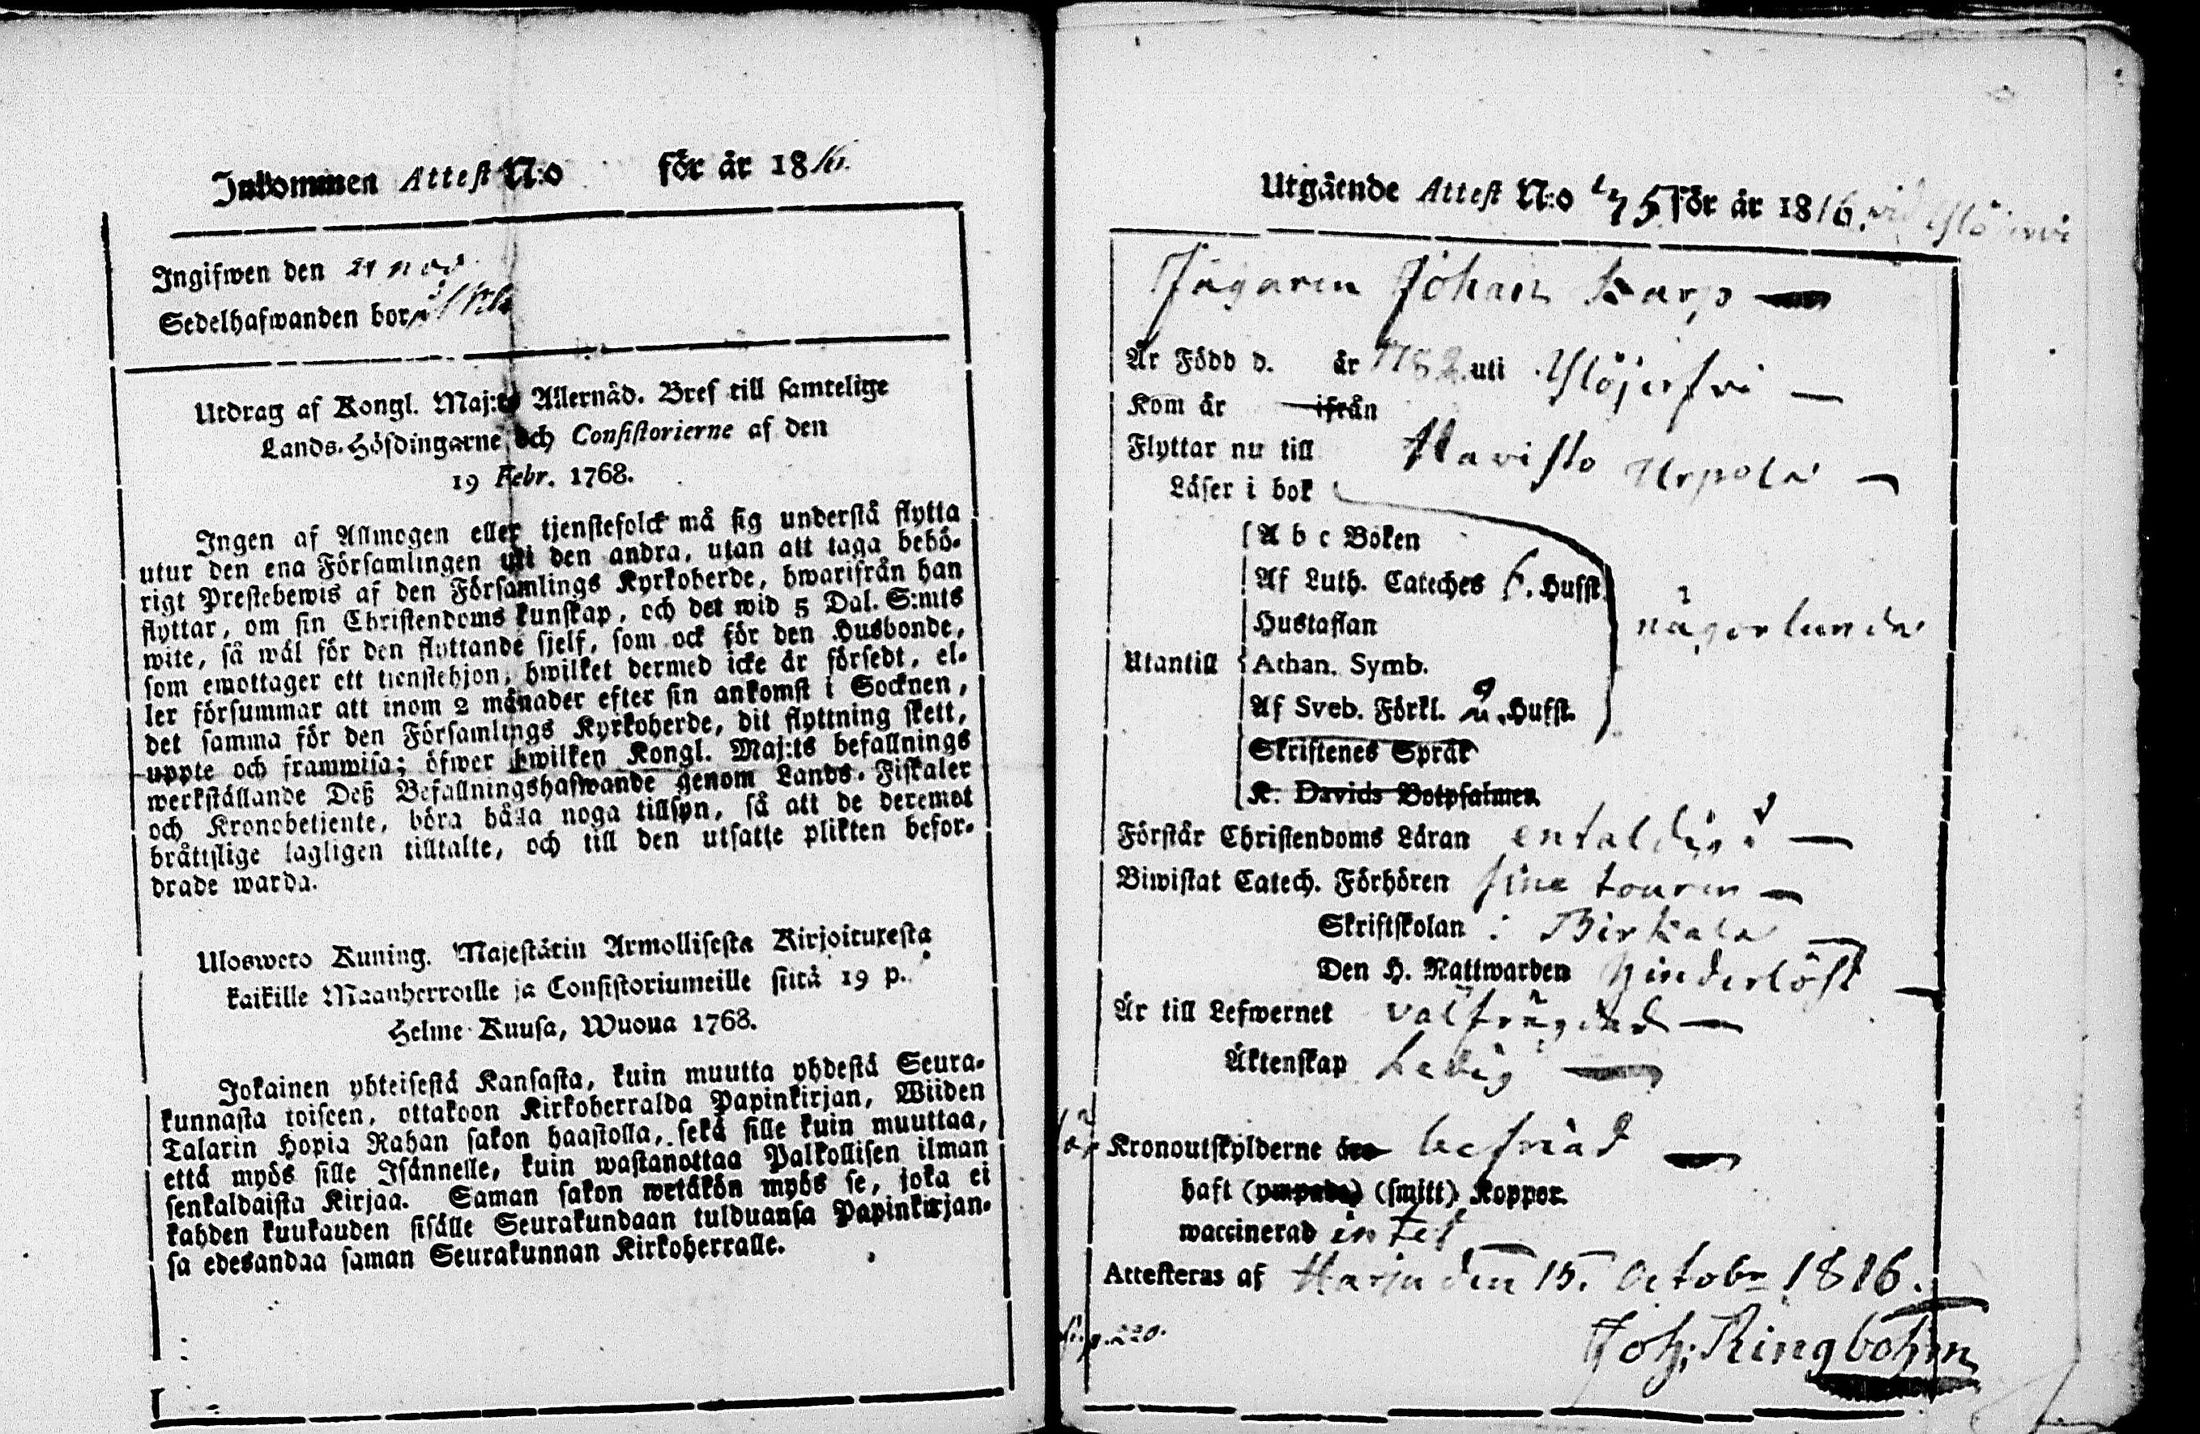 Inkommen Attest N:o för år 1816.
Ingifwen den 24 nov
Sedelhafwanden bor
Utdrag af Kongl. Maj:ts Allernåd. Bref till samtelige
Lands-Höfdingarne och Consistorierne af den
19 Febr. 1768.
Ingen af Allmogen eller tjenstefolck må sig understå flytta
utur den ena Församlingen uti den andra, utan att taga behö-
rigt Prestebewis af den Församlings Kyrkoherde, hwarifrån han
flyttar, om sin Christendoms kunskap, och det wid 5 Dal. S:mts
wite, så wäl för den flyttande sjelf, som ock för den Husbonde,
som emottager ett tienstehjon, hwilket dermed icke är försedt, el-
ler försummar att inom 2 månader efter sin ankomst i Socknen,
det samma för den Församlings Kyrkoherde, dit flyttning skett,
uppte och frammwisa; öfwer hwilken Kongl. Maj:ts befallnings
werkställande Deß Befallningshafwande genom Lands-Fiskaler
och Kronobetjente, böra hålla noga tillsyn, så att de deremot
bråttslige lagligen tilltalte, och till den utsatte plikten befor-
drade warda.
Ulosweto Kuning. Majestätin Armollisesta Kirjoituxesta
kaikille Maanherroille ja Consistoriumeille siitä 19 p.
Helme-Kuusa, Wuoua 1768.
Jokainen yhteisestä Kansasta, kuin muutta yhdestä Seura-
kunnasta toiseen, ottakoon Kirkoherralda Papinkirjan, Wiiden
Talarin Hopia Rahan sakon haastolla, sekä sille kuin muuttaa,
että myös sille Isännelle, kuin wastanottaa Palkollisen ilman
senkaldaista Kirjaa. Saman sakon wetäkön myös se, joka ei
kahden kuukauden sisälle Seurakundaan tulduansa Papinkirjan-
sa edesandaa saman Seurakunnan Kirkoherralle.
Utgående Attest N:o 75 för år 1816.
Jägaren Johan Karp
Är Född d. år 1782 uti Ylöjerfvi
Kom år ifrån
Flyttar nu till Havisto Urpola
Läser i bok
A b c Boken
Af Luth. Cateches 6. Hufst.
Hustaflan någorlunda
Utantill Athan. Symb.
Af Sveb. Förkl. 2. Hufst.
Skriftenes Språk
K. Davids Botpsalmer.
Förstår Christendoms Läran enfaldigt
Biwistat Catech. Förhören sine touren
Skriftskolan i Birkala
Den H. Nattwarden hinderlöst
Är till Lefwernet välfrägdad
Äktenskap Ledig
för Kronoutskylderne befriad
haft (ympade) (smitt) Koppor.
waccinerad intet
Attesteras af Harju den 15. Octobr 1816.
p. 220.
Joh: Ringbohm